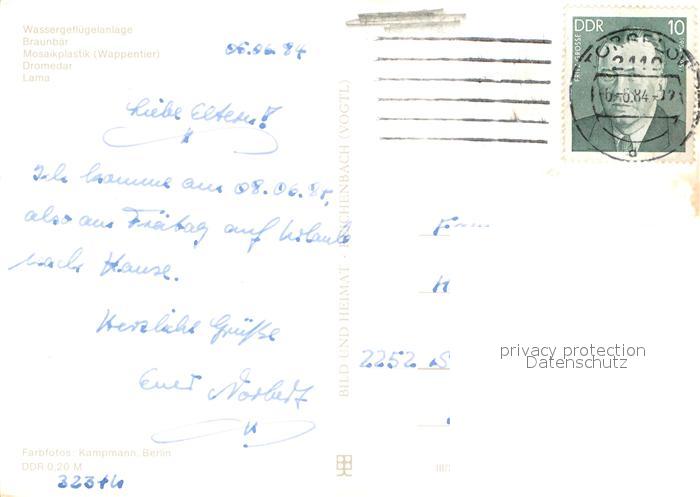 Wassergeflügelanlage
Braunbär
Mosaikplastik (Wappentier)
Dromedar
Lama
06.06.84
Liebe Eltern!
Ich komme am 08.06.84,
also am Freitag auf Urlaub
nach Hause.
Herzliche Grüße
Euer Norbert
Farbfotos: Kampmann, Berlin
DDR 0,20 M
BILD UND HEIMAT · REICHENBACH (VOGTL)
DDR 10
FRITZ GROSSE
2110
-6.-6.84
2252 S
privacy protection
Datenschutz